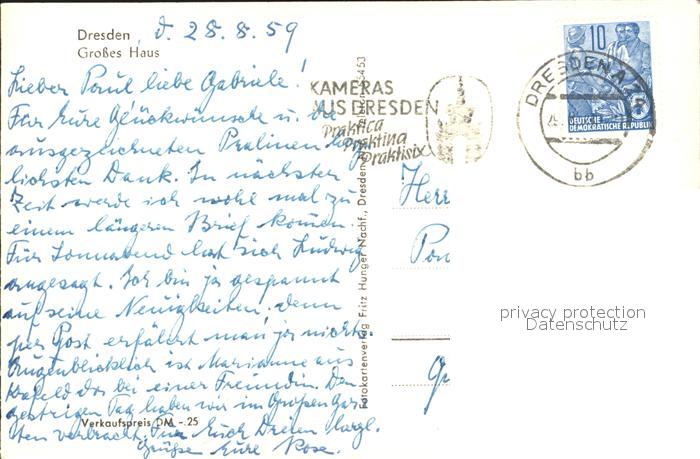 Dresden, d. 28.8.59
Großes Haus
Lieber Paul liebe Gabriele!
Für Eure Glückwünsche u. die
ausgezeichneten Pralinen herz
lichsten Dank. In nächster
Zeit werde ich wohl mal zu
einem längeren Brief kommen.
Für Sonnabend hat sich Ludwig
angesagt. Ich bin ja gespannt
auf seine Neuigkeiten, denn
per Post erfährt man ja nichts.
Augenblicklich ist Marianne aus
da bei einer Freundin. Den
gestrigen Tag haben wir im Großen Gar
ten verbracht. Für Euch Dreien herzl.
Grüße Eure Rose.
Verkaufspreis DM -.25
Fotokartenverlag Fritz Hunger Nachf., Dresden
KAMERAS
AUS DRESDEN
Praktica
Praktina
Praktisix
DRESDEN A
bb
10
DEUTSCHE
DEMOKRATISCHE REPUBLIK
Herr
Pau
privacy protection
Datenschutz